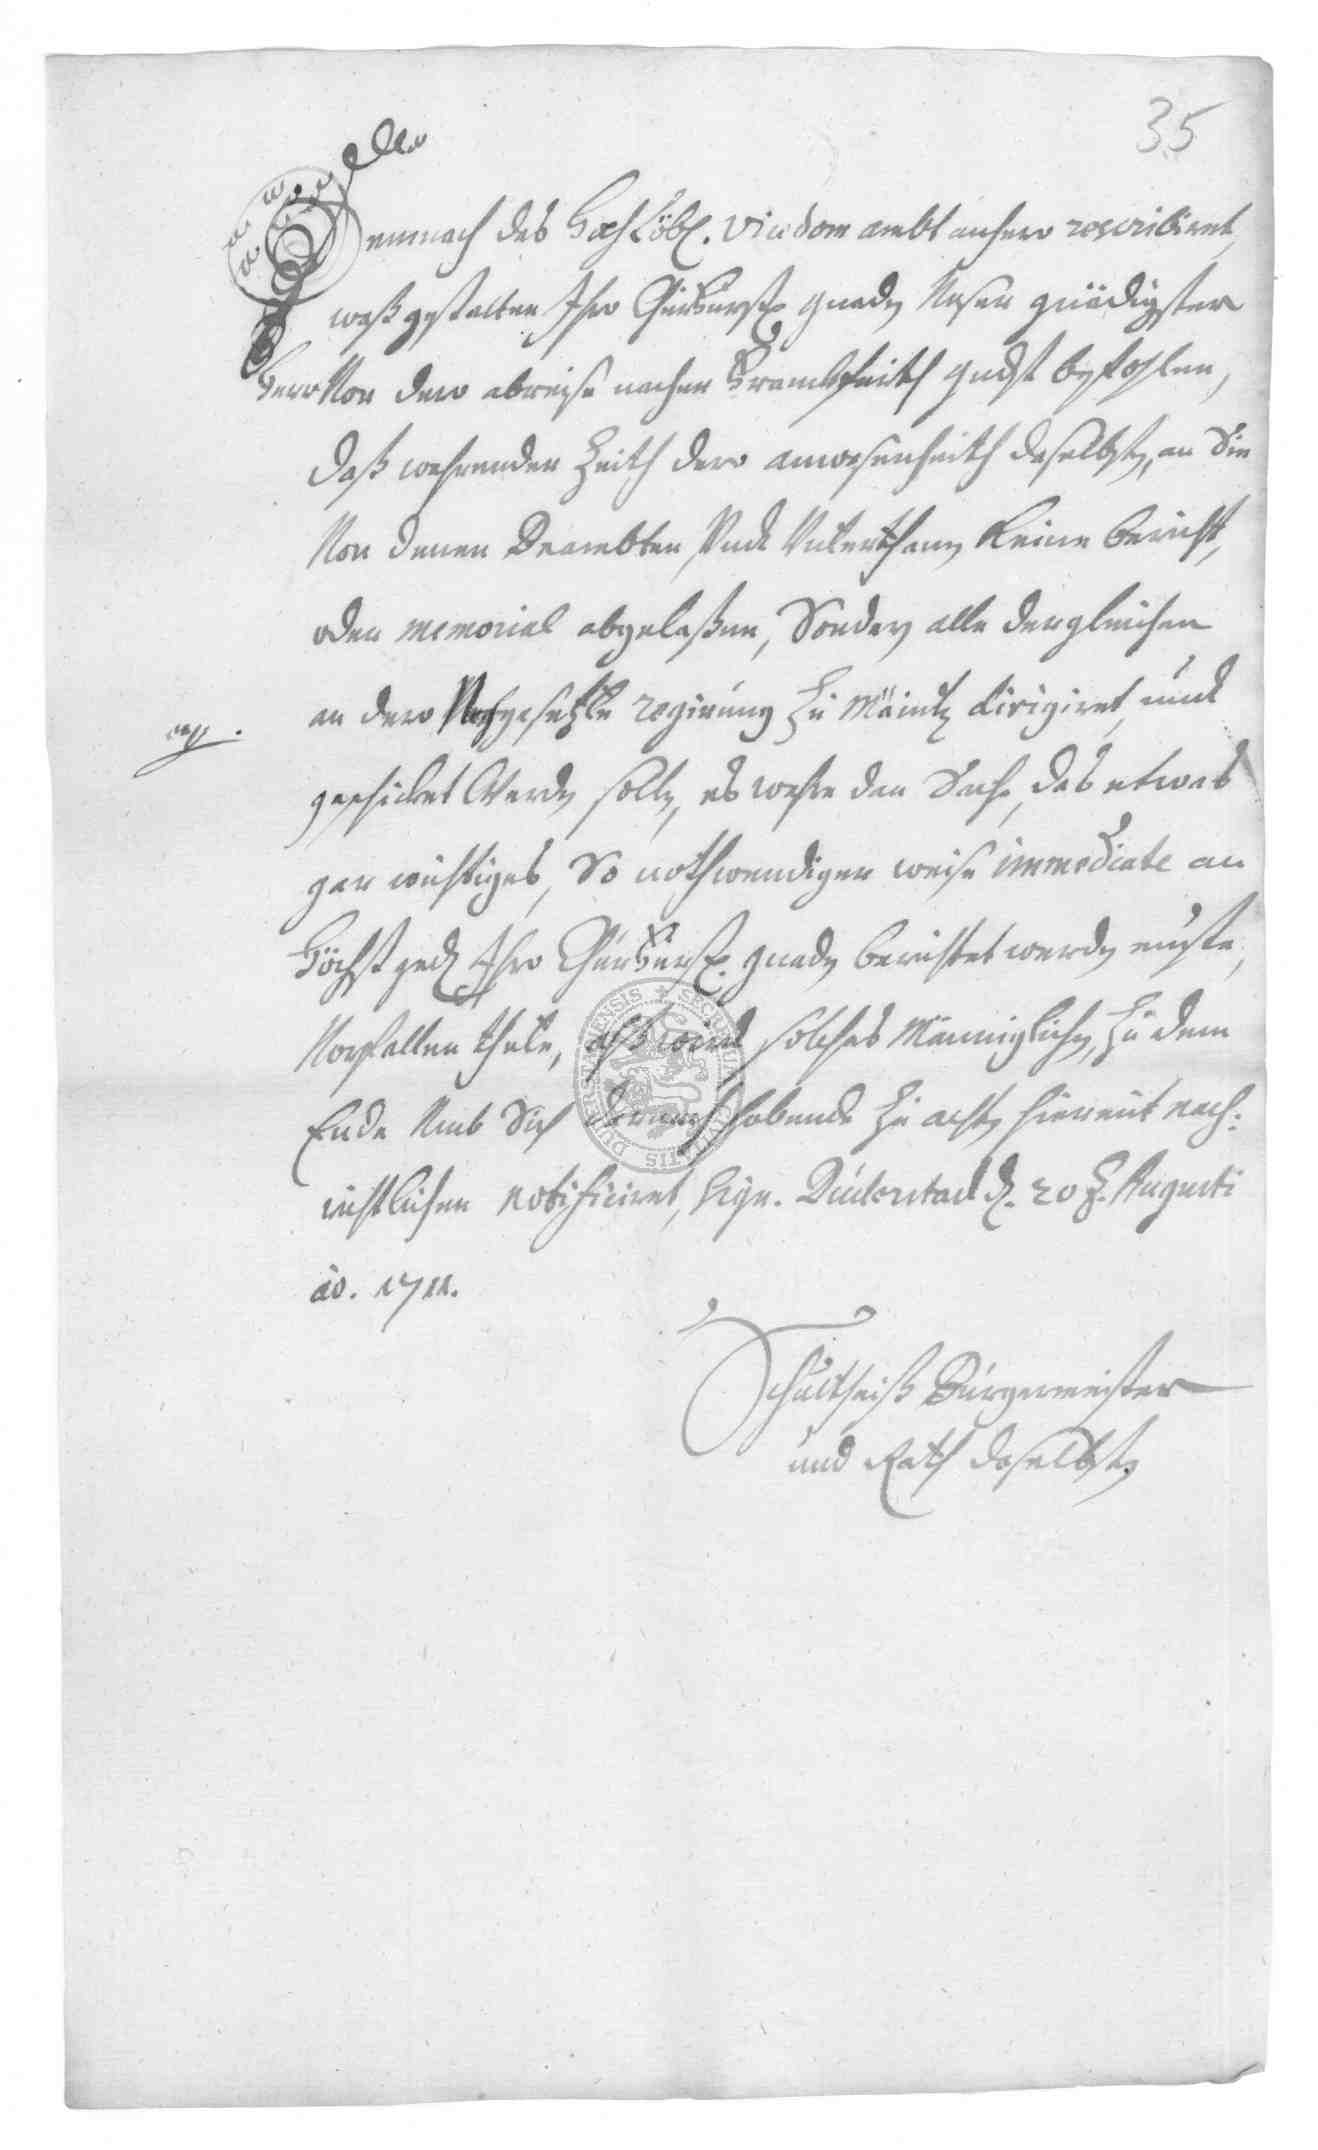 35
Demnach das Hochlöbl. Vicedom ambt anhero rescribiret,
waß gestalten Ihro Churfürstl. gnadn Unser gnädigster
Herr Vor dero abreise nacher Franckfurth gndst befohlen,
daß wehrender Zeith dero anwesenheith daselbsten, an Sie
Von denen Beambten Undt Unterthanen keine bericht,
oder memorial abgelaßen, Sondern alle dergleichen
an dero Nachgesetzte regirung zu Mäintz dirigiret, undt
geschicket Werdn solln, es wehre dan Sach, das etwas
gar wichtiges, So nothwendiger weise immediate an
Höchst ged. Ihro Churfürstl. gnadn berichtet werdn muste,
Vorfallen thete, alß wird solches Männiglichen, zu dem
Ende Umb Sich darnach habende zu achtn hiermit nach-
richtlichen notificiret, Sign. Duderstadt d. 20t. Augusti
ao. 1711.
Schultheiß Bürgermeister
und Rath daselbsten
SECRETUM CIVITATIS DUDERSTADENSIS